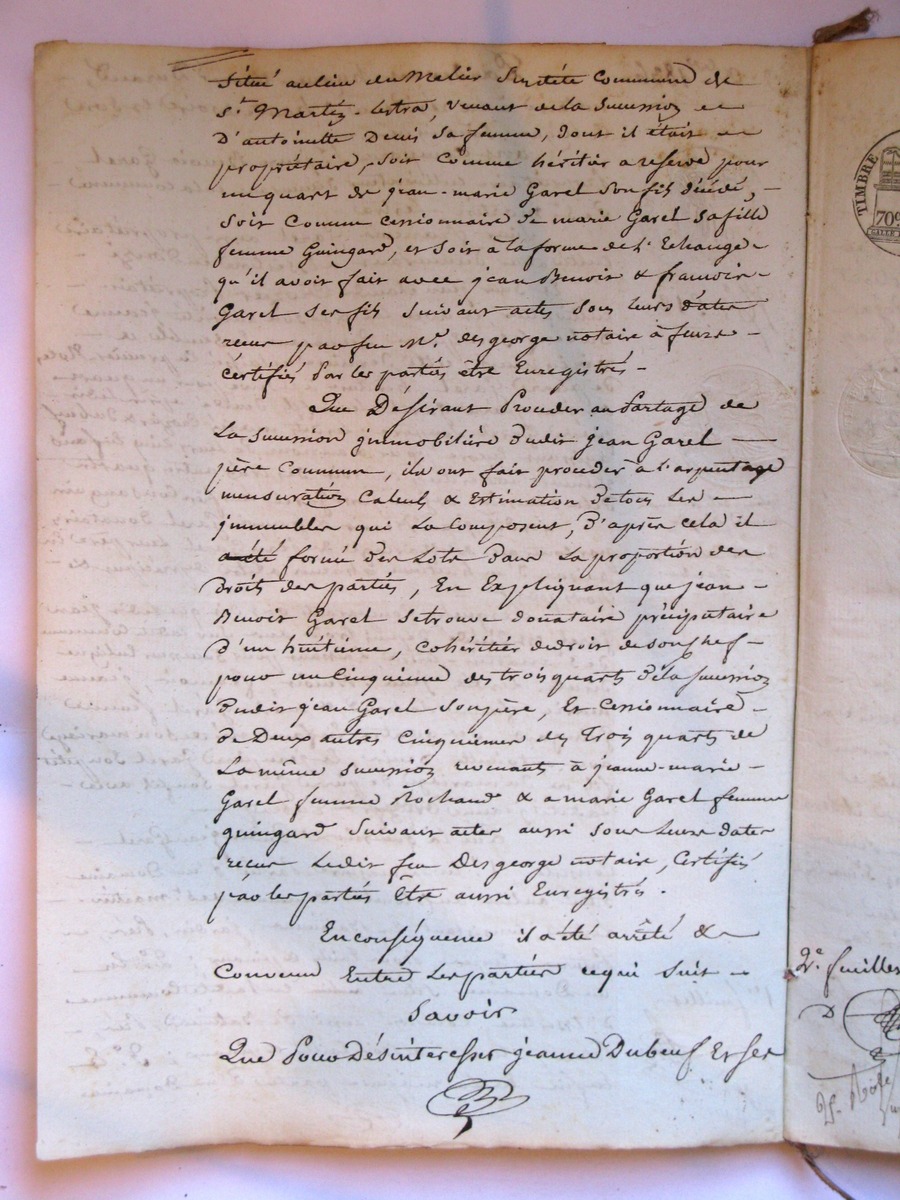 situé au lieu du Melier Surdité Commune de
St. Martin-lestra, venant de la Succession
D'antoinette Denis sa femme, dont il était
propriétaire, soit comme héritier a reserve pour
un quart de jean-marie Garel son fils décédé,
soit comme cessionnaire de marie Garel sa fille
femme Guingard, et soit à la forme de l'Echange
qu'il avoit fait avec jean Benoit & francois
Garel ses fils suivant actes sous leurs dates
recus par feu Me. desgeorge notaire à feurs
certifiés par les parties être Enregistrés.
Que Désirant Proceder au Partage de
La succession jmmobilière dudit jean Garel
père commun, ils ont fait proceder à l'arpentage
mensuration Calculs & Estimation de tous les
jmmeubles qui La Composent, D'après cela il
a été formé des Lots dans La proportion des
Droits des parties, En Expliquant que jean
Benoit Garel se trouve donataire préciputaire
D'un huitième, cohéritier de droit de son chef
pour un Cinquieme des trois quarts de la succession
Dudit jean Garel son père, Et Cessionnaire
de Deux autres Cinquiemes des Trois quarts de
La même succession revenants à jeanne-marie
Garel femme Rochand & a marie Garel femme
guingard suivant actes aussi sous leurs dates
recus Ledit feu Desgeorge notaire, Certifiés
par les parties Être aussi Enregistrés.
En conséquence il a été arrêté &
Convenu Entre Les parties ce qui suit
Savoir
Que Pour Désinteresser jeanne Dubeuf Et ses
TIMBRE
70c
2e. feuilles